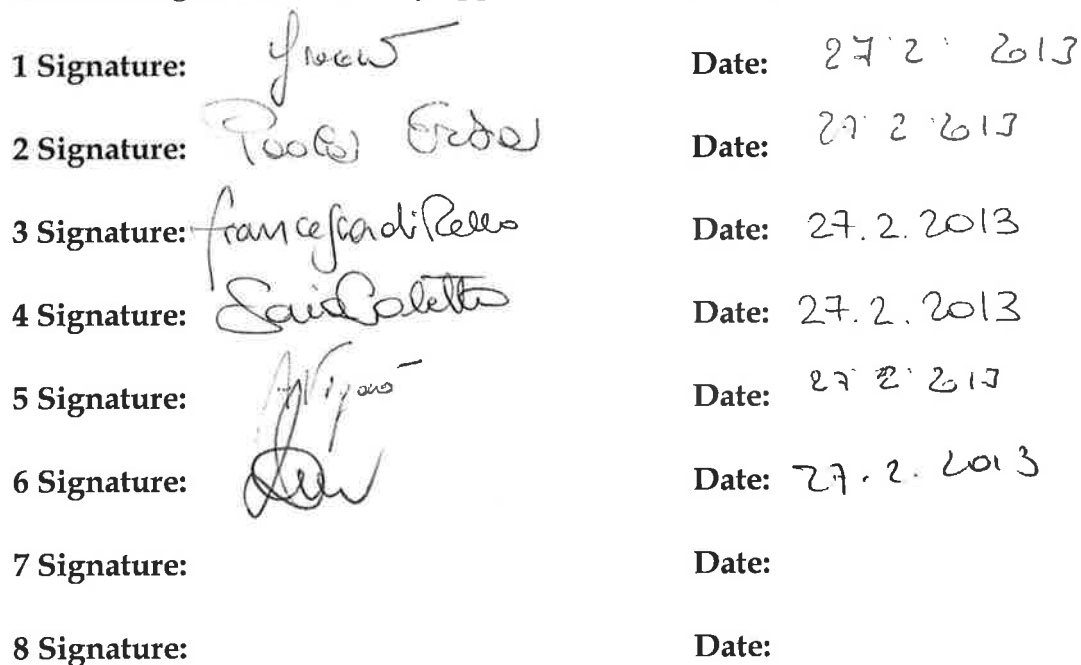 1 Signature: Date: 27 2 2013
2 Signature: Date: 27 2 2013
3 Signature: Francesca di Date: 27.2.2013
4 Signature: Date: 27.2.2013
5 Signature: Date: 27 2 2013
6 Signature: Date: 27.2.2013
7 Signature: Date:
8 Signature: Date: